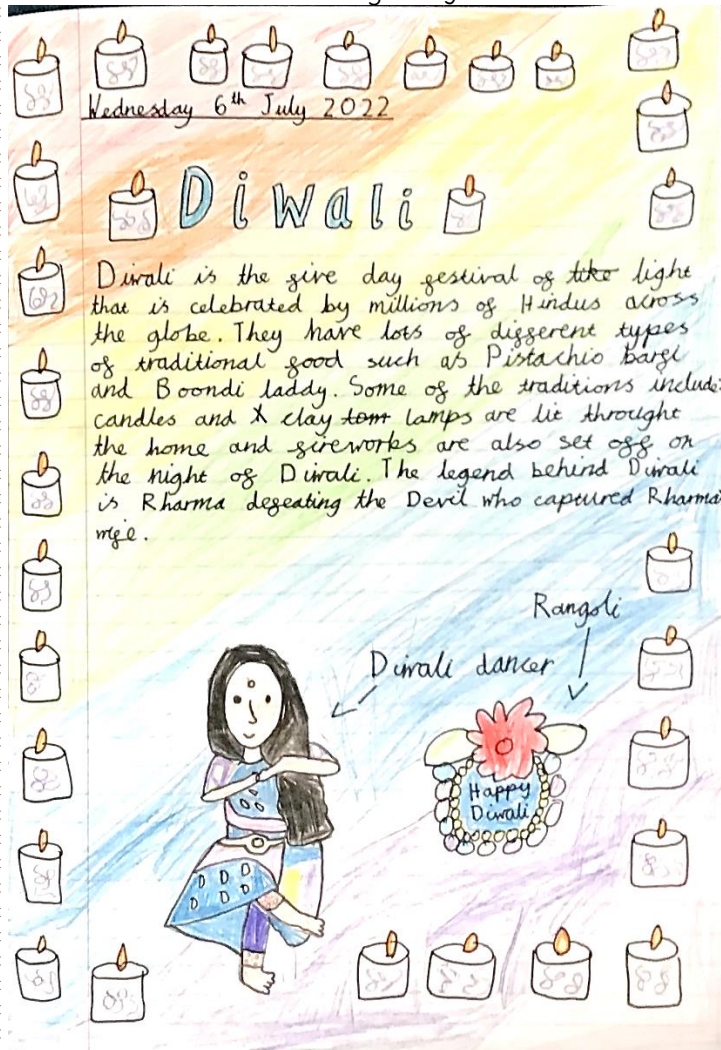 Wednesday 6th July 2022
Diwali
Diwali is the five day festival of like light
that is celebrated by millions of Hindus across
the globe. They have lots of different types
of traditional food such as Pistachio Barfi
and Boondi laddy. Some of the traditions include:
candles and clay lamps are lit throught
the home and fireworks are also set off on
the night of Diwali. The legend behind Diwali
is Rharma defeating the Devil who captured Rharma
wife.
Rangoli
Diwali dancer
Happy
Diwali